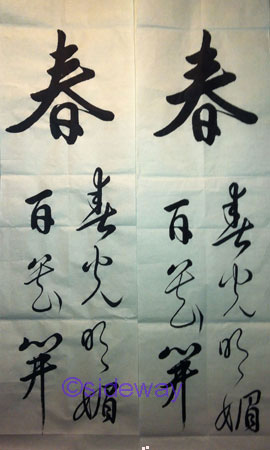 春
春光明媚
百花開
春
春光明媚
百花開
©sideway